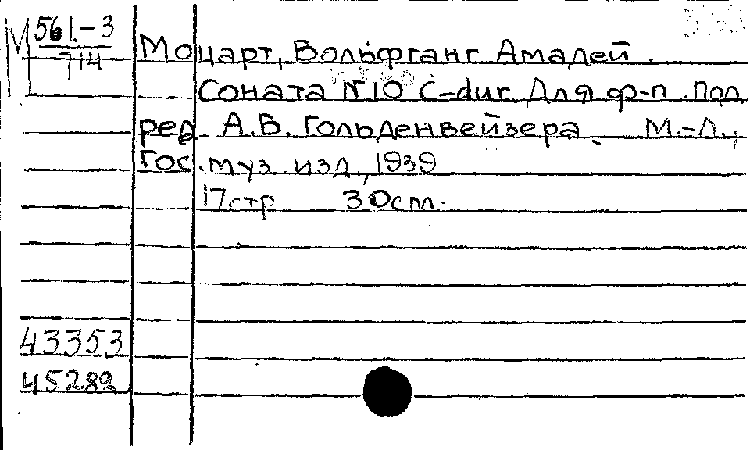 М 561-3
714
Моцарт, Вольфганг Амадей.
Соната №10 C-dur. Для ф-п. Под
ред. А.Б. Гольденвейзера. М.-Л.,
Гос. муз. изд., 1939
17 стр
43353
45282